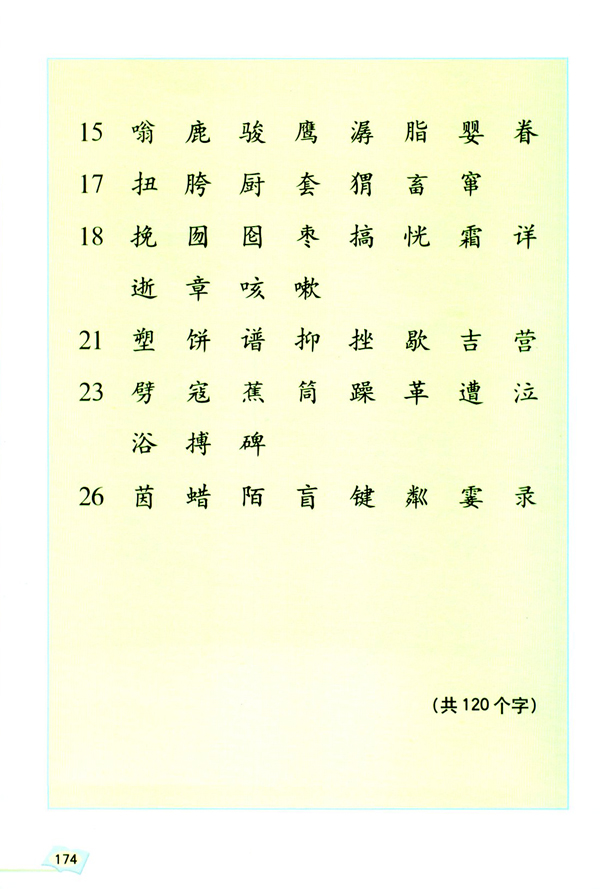 15 嗡 鹿 骏 鹰 潺 脂 婴 眷
17 扭 胯 厨 套 猬 畜 窜
18 挽 囫 囵 枣 搞 恍 霜 详
逝 章 咳 嗽
21 塑 饼 谱 抑 挫 歇 吉 营
23 劈 寇 蕉 筒 躁 革 遭 泣
浴 搏 碑
26 茵 蜡 陌 盲 键 粼 霎 录
(共120个字)
174